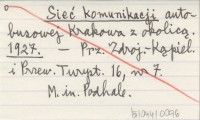 Sieć komunikacji auto-
busowej Krakowa z okolicą.
1927. — Prz. Zdroj.-Kąpiel.
i Przew. Turyst. 16, nr 7.
M. in. Podhale.